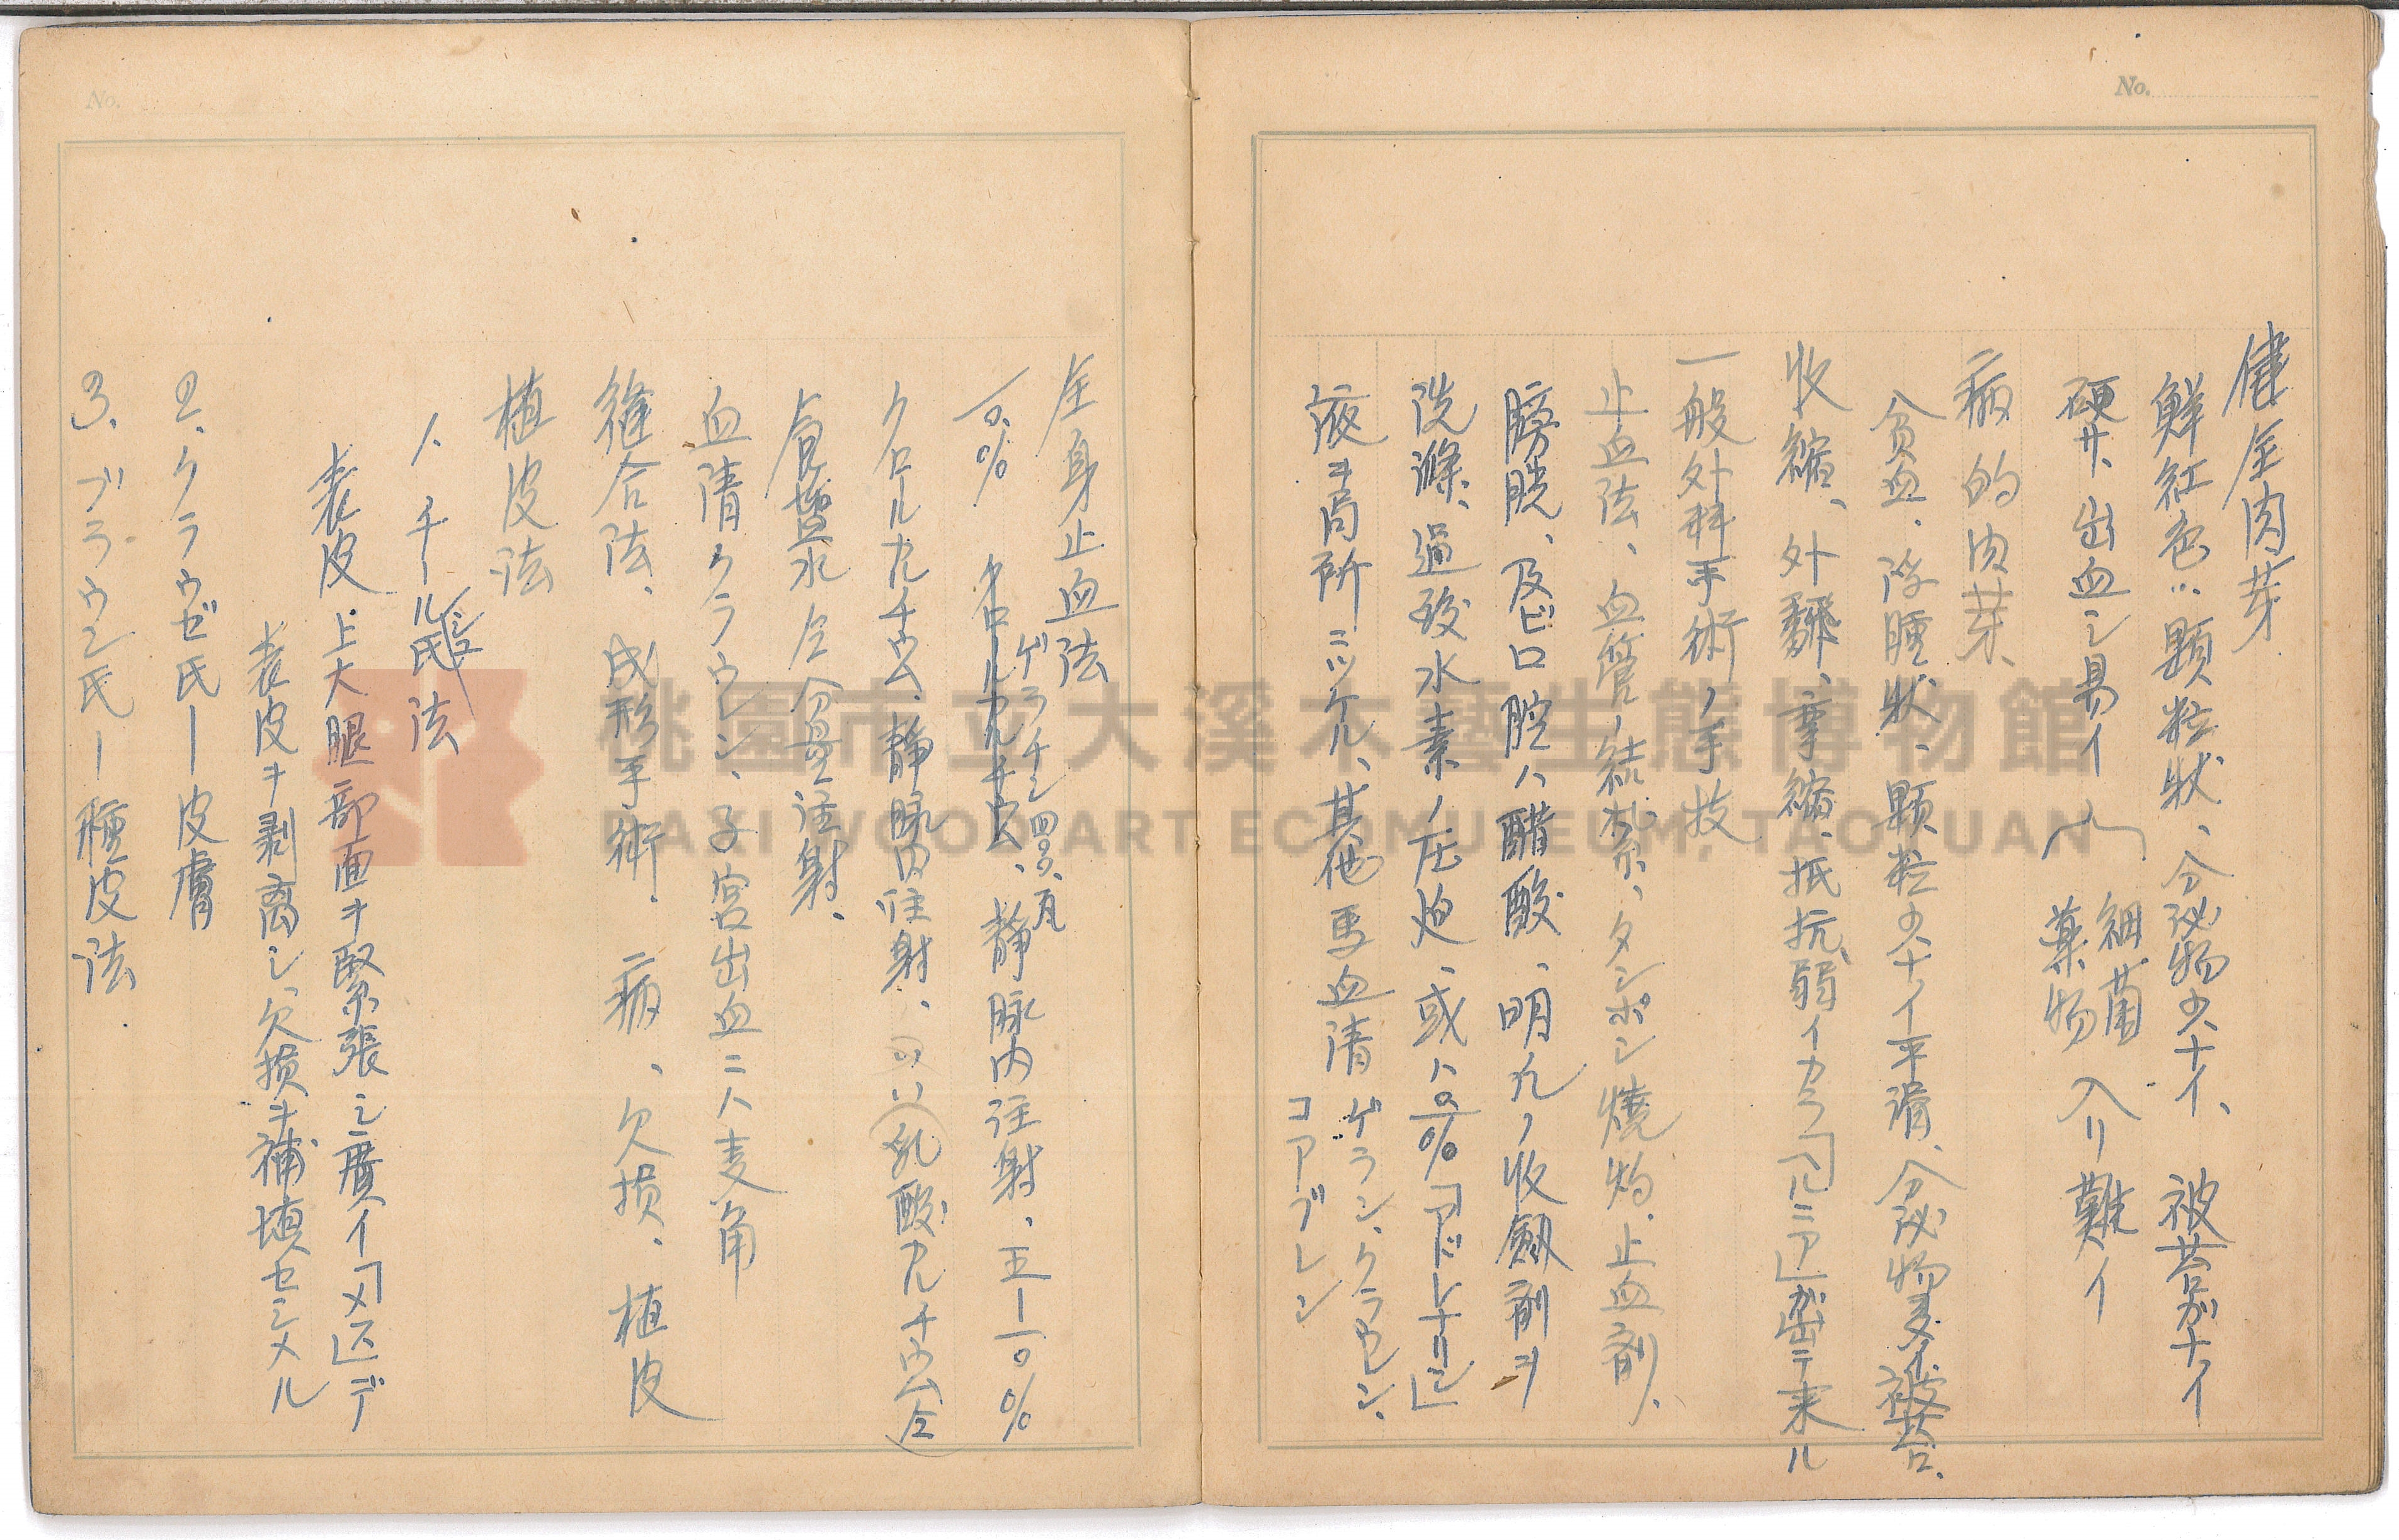 No.
健全肉芽
鮮紅色‥顆粒状、分泌物少ナイ、被苔ガナイ
硬サ、出血シ易イ 細菌
薬物 入リ難イ
病的肉芽、
貧血、浮腫状、顆粒少ナイ平滑、分泌物多イ被苔、
收縮、外飜、挛縮、抵抗弱イカラ「ヘルニア」ガ出テ来ル
一般外科手術ノ手技
止血法、血管ノ結紮、タンポン焼灼、止血剤、
膀胱、及ビ口腔ハ醋酸、明九ノ收斂剤ヲ
洗滌、過酸水素ノ圧迫、或ハ 「アドレナリン」
液ヲ局所ニツケル、其他馬血清 ゲラン、クラウデン、
コアグレン
No.
全身止血法
ゲラチン四〇.〇、瓦
一〇.% クロールカルチウム、静脉内注射、五ー一〇%
クロルカルチウム、静脉内注射、 乳酸カルチウム仝
食塩水仝分量注射、
血清クラウデン、子宮出血ニハ麦角
縫合法、成形手術、病、欠損、植皮
植皮法
1、チールシュ氏法
表皮上大腿部面ヲ緊張シ廣イ「メス」デ
表皮ヲ剥离シ、欠損ヲ補填セシメル
2、クラウゼ氏ー皮膚
3、ブラウン氏ー種皮法.
桃園市立大溪木藝生態博物館
DAXI WOOD ART ECOMUSEUM, TAOYUAN